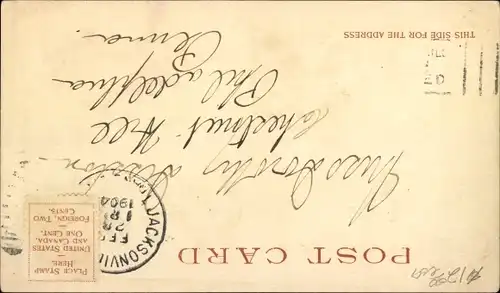 POST CARD
PLACE STAMP
HERE.
UNITED STATES
AND CANADA,
ONE CENT.
FOREIGN, TWO
CENTS.
JACKSONVIL
FEB
1904
THIS SIDE FOR THE ADDRESS
Miss Dorothy
Chestnut Hill
Philadelphia
Penna.